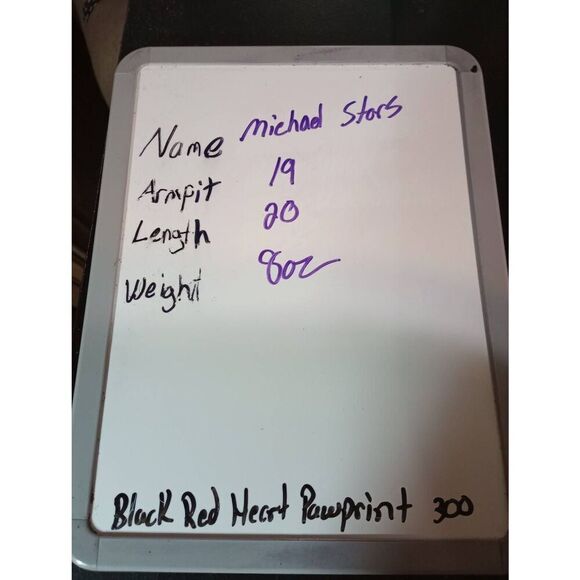 Name Michael Stars
Armpit 19
Length 20
Weight 8oz
Black Red Heart Pawprint 300